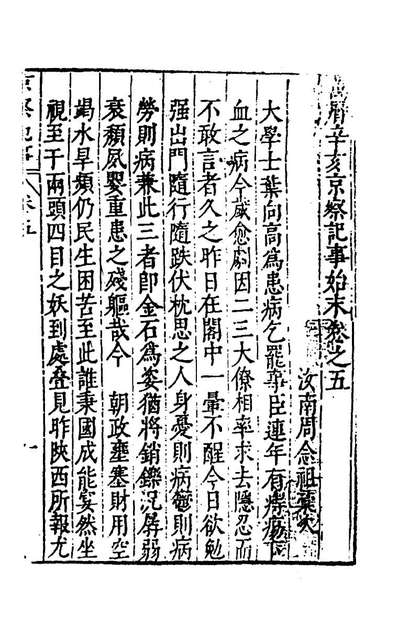 萬曆辛亥京察記事始末卷之五
汝南周念祖
大學士葉向高爲患病乞罷事臣連年有痔瘡下
血之病今歲愈劇因二三大僚相率求去隱忍而
不敢言者久之昨日在閣中一暈不醒今日欲勉
强出門隨行隨跌伏枕思之人身憂則病鬱則病
勞則病兼此三者卽金石爲姿猶將銷鑠况孱弱
衰頽夙嬰重患之殘軀哉今 朝政壅塞財用空
竭水旱頻仍民生困苦至此誰秉國成能宴然坐
視至于兩頭四目之妖到處叠見昨陝西所報尤
京察記事 卷五 一